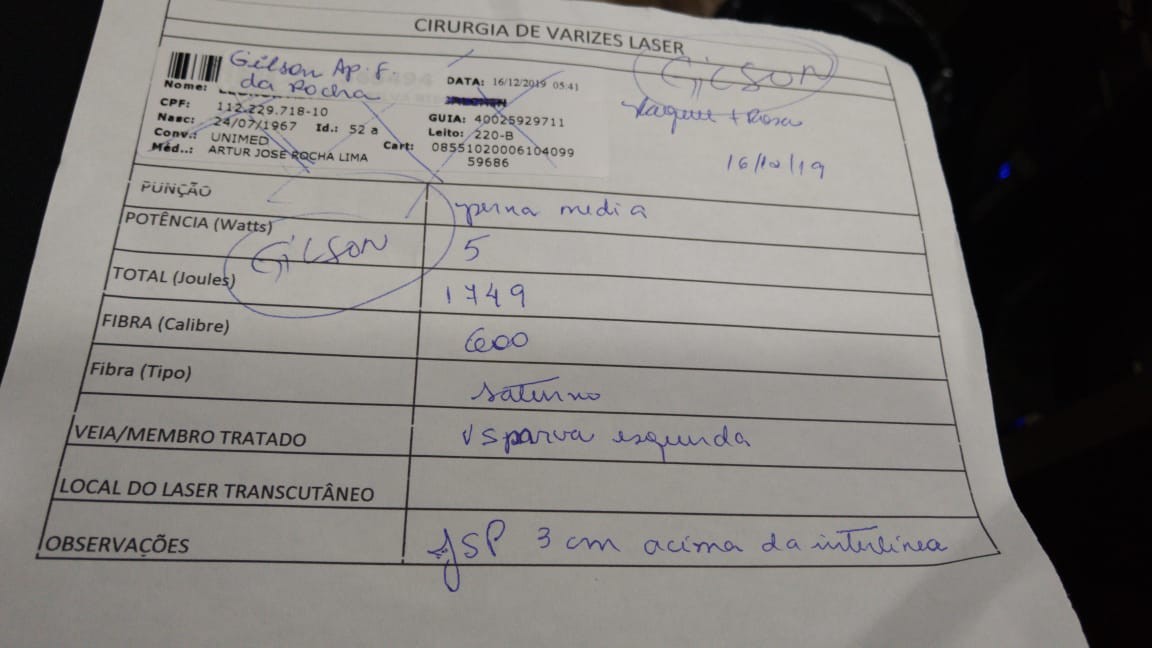 CIRURGIA DE VARIZES LASER
Gilson Ap. F.
da Rocha
Nome:
CPF: 112.229.718-10
Nasc: 24/07/1967 Id.: 52 a
Conv.: UNIMED
Méd..: ARTUR JOSE ROCHA LIMA
DATA: 16/12/2019 05:41
GUIA: 40025929711
Leito: 220-B
Cart: 08551020006104099
59686
GILSON
Raquel + Rosa
16/12/19
PUNÇÃO perna media
POTÊNCIA (Watts) 5
GILSON
TOTAL (Joules) 1749
FIBRA (Calibre) 600
Fibra (Tipo) saturno
VEIA/MEMBRO TRATADO VS parva esquerda
LOCAL DO LASER TRANSCUTÂNEO
OBSERVAÇÕES JSP 3 cm acima da interlinea